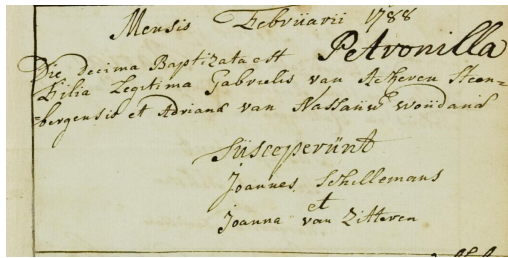 Mensis Februarii 1788
Die decima Baptizata est Petronilla
Filia Legitima Gabrielis van Acheren Steen=
=bergensis et Adrianæ van Nassauw Woudanæ
Susceperunt
Joannes Schillemans
et
Joanna van Zitteren